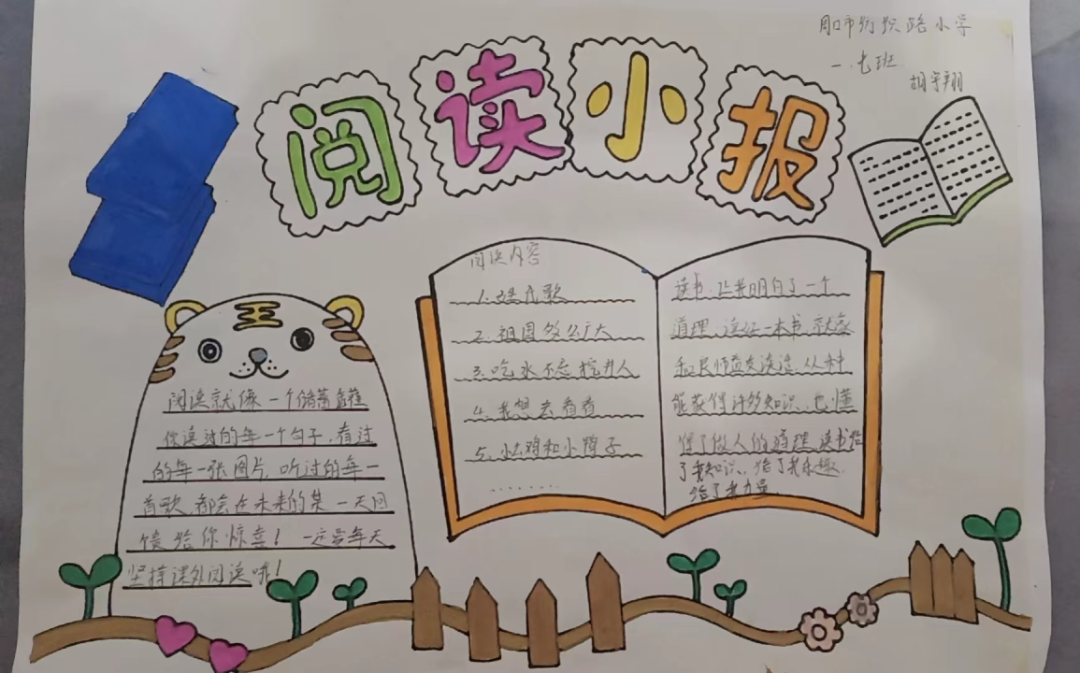 阅读小报
小学
一.七班
胡宇翔
阅读内容
1.姓氏歌
2.祖国多么广大
3.吃水不忘挖井人
4.我想去看看
5.小公鸡和小鸭子
........
读书,让我明白了一个
道理,读好一本书,就像
和良师益友谈话,从中
能获得许多知识、也懂
得了做人的道理,读书给
了我知识、给了我乐趣
给了我力量
阅读就像一个储蓄罐
你读过的每一个句子,看过
的每一张图片,听过的每一
首歌,都会在未来的某一天回
馈给你惊喜!一定要每天
坚持课外阅读哦!
王